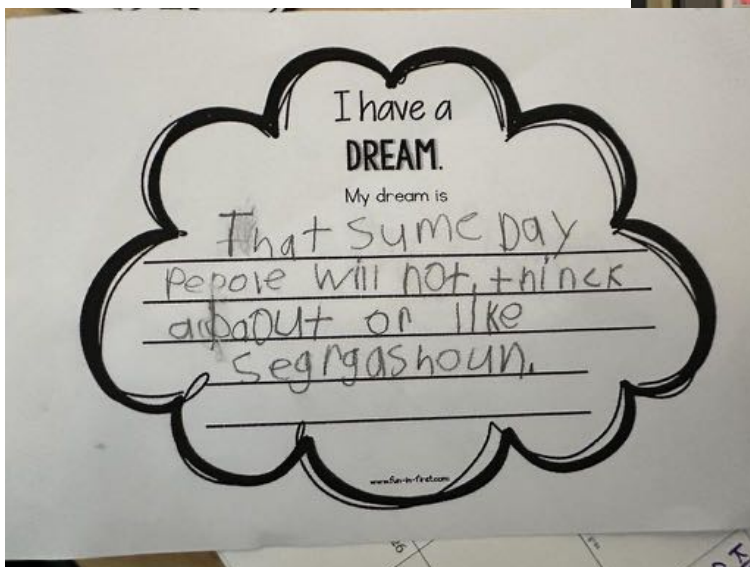 I have a
DREAM.
My dream is
That sume Day
pepole will not, thinck
abaout or like
segrgashoun.
www.fun-in-first.com